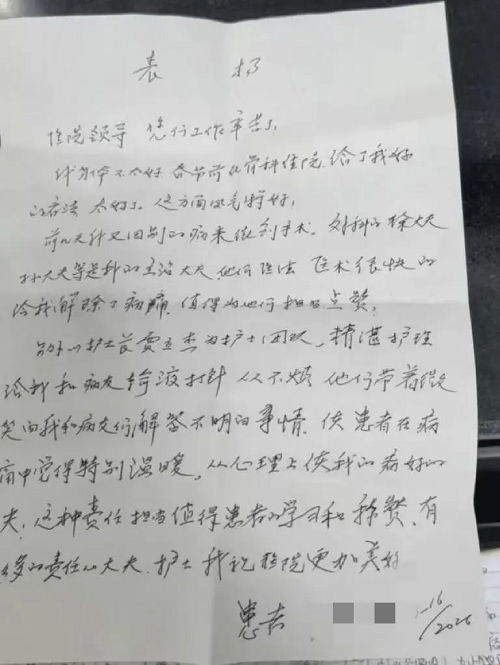 表扬
医院领导 您们工作辛苦了
我身体不太好 春节前在骨科住院 给了我好
的看法 太好了 这方面风气特好,
前几天我又因别的病来做个手术。外科的徐大夫
孙大夫等是我的主治大夫,他们医法 医术很快的
给我解除了病痛,值得为他们担当点赞。
另外以护士长贾玉杰为护士团队,精湛护理
给我和病友输液打针 从不烦 他们带着微
笑向我和病友们解答不明白事情,使患者在病
痛中觉得特别温暖,从心理上使我的病好的
大夫,这种责任担当值得患者的学习和称赞,有
的责任心大夫、护士 我祝医院更加美好
患者
16/2026